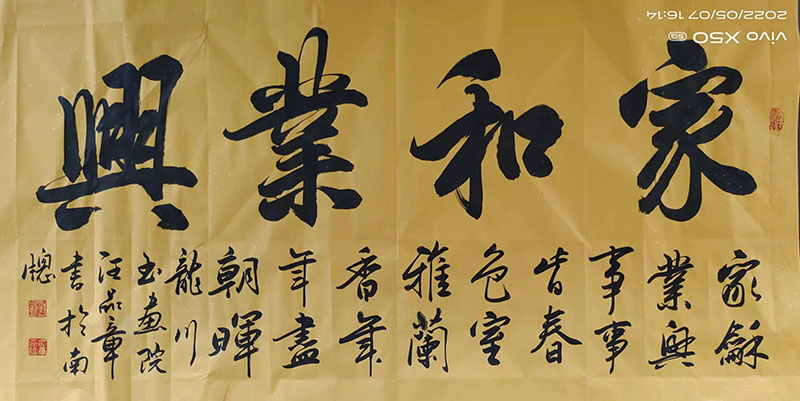 家和業興
家龢
業興
事事
皆春
色室
雅蘭
香年
年盡
朝暉
龍川
书畫院
汪章
書於南
牕
vivo X50 5G
2022/05/07 16:14